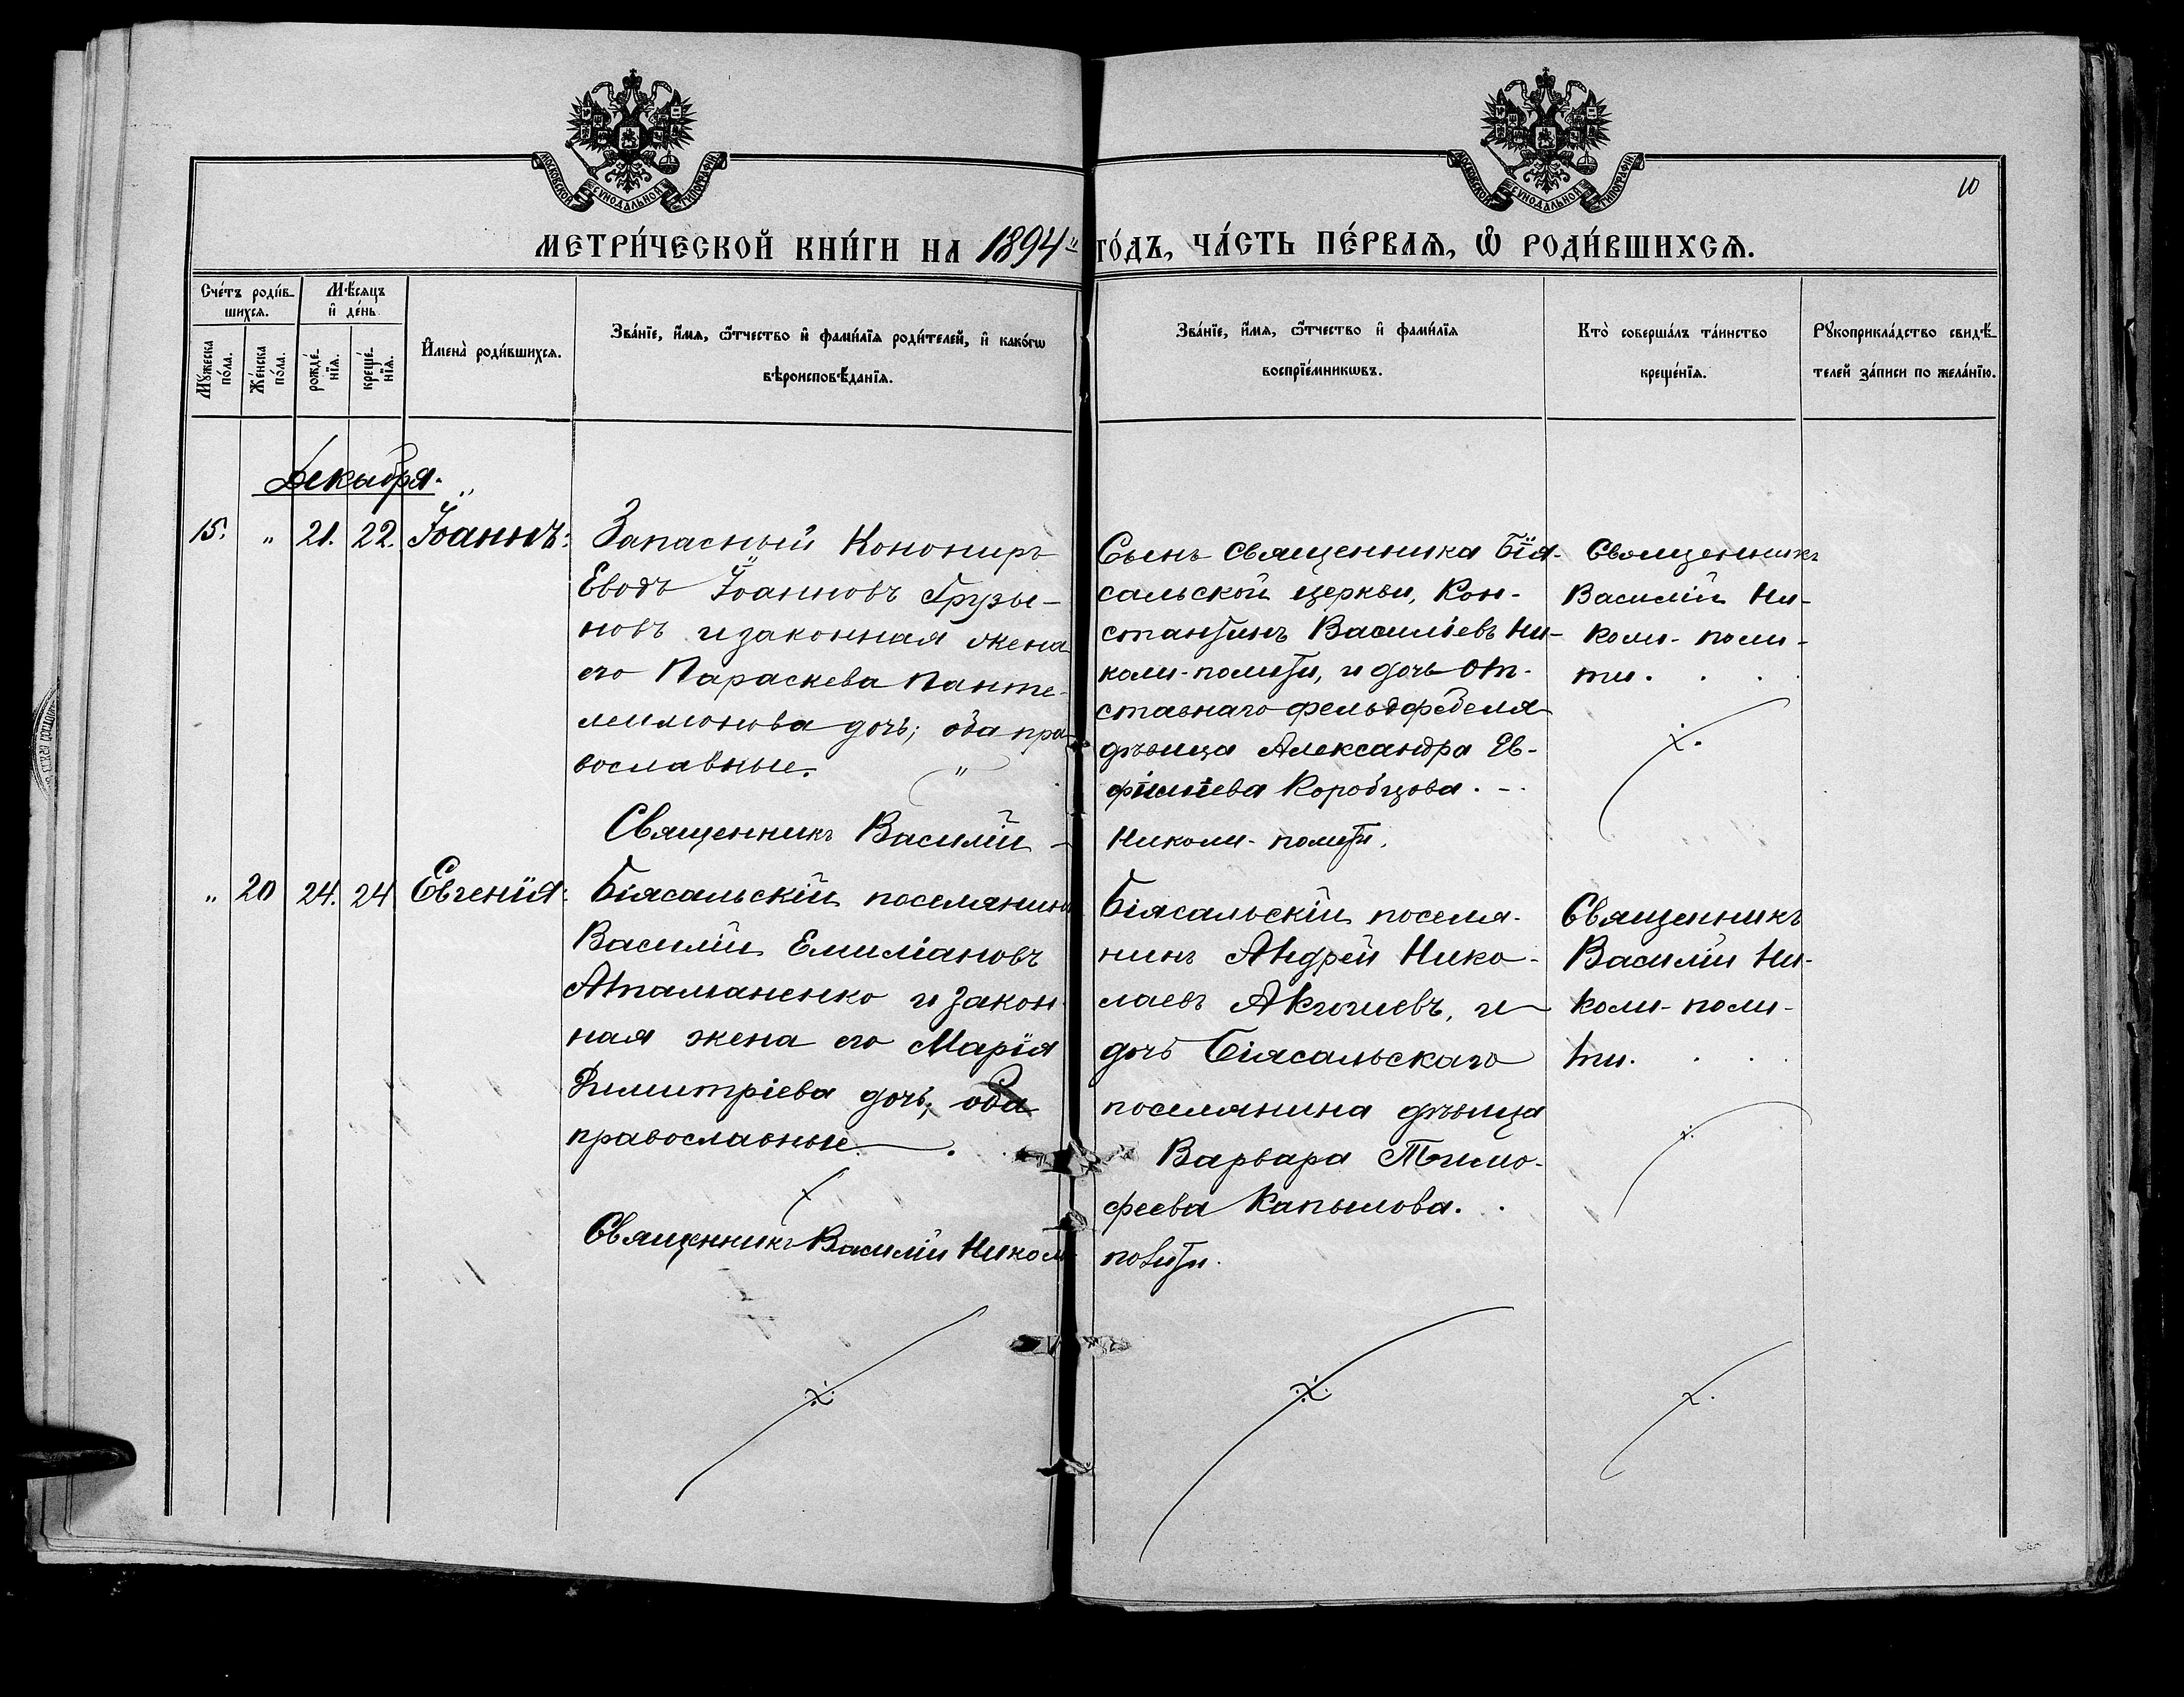 МОСКОВСКОЙ СУНОДАЛЬНОЙ ТИПОГРАФІИ
МОСКОВСКОЙ СУНОДАЛЬНОЙ ТИПОГРАФІИ
10
МЕТРИ́ЧЕСКОЙ КНИ́ГИ НА 1894 ГО́ДЪ, ЧА́СТЬ ПЕ́РВАѦ, Ѡ҆ РОДИ́ВШИХСѦ.
Сче́тъ роди́в-
шихсѧ.
Мѣ́сѧцъ
и҆ де́нь
Мꙋ́жеска
по́ла.
Же́нска
по́ла.
рожде́-
нїѧ.
креще́-
нїѧ.
И҆мена̀ роди́вшихсѧ.
Зва́нїе, и҆́мѧ, ѻ҆́тчество и҆ фами́лїѧ роди́телей, и҆ како́гѡ
вѣроисповѣ́данїѧ.
Зва́нїе, и҆́мѧ, ѻ҆́тчество и҆ фами́лїѧ
воспрїе́мникѡвъ.
Кто̀ соверша́лъ та́инство
креще́нїѧ.
Рꙋкоприкла́дство свидѣ́-
телей за́писи по жела́нїю.
Декабря.
15. " 21. 22. Іоаннъ:
Запасный Кононир
Еводъ Іоанновъ Грузы-
новъ и законная жена
его Параскева Панте-
леимонова дочь; оба пра-
вославные. "
Сынъ Священника Бія-
сальской церкви, Кон-
стантинъ Василіевъ Ни-
коли-полити, и дочь от-
ставнаго фельдфебеля
дѣвица Александра Ев-
фиміева Коробцова. -
Священникъ
Василій Ни-
коли-поли-
ти.
Священникъ Василій - Николи-полити.
" 20 24. 24 Евгенія:
Біясальскій поселянинъ
Василій Емиліановъ
Атаманенко и закон-
ная жена его Марія
Димитріева дочь; оба
православные.
Біясальскій поселя-
нинъ Андрей Нико-
лаевъ Акчиевъ, и
дочь Біясальскаго
поселянина дѣвица
Варвара Тимо-
феева Капылова.
Священникъ
Василій Ни-
коли-поли-
ти.
Священникъ Василій Николи-
полити.